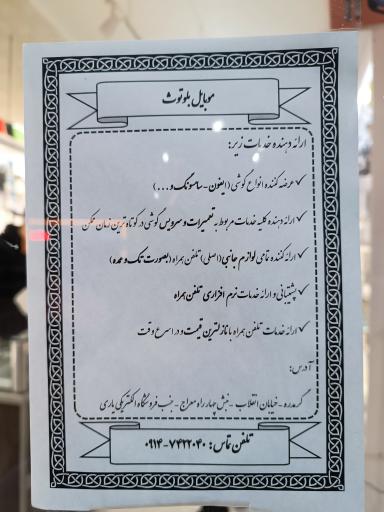 موبایل بلوتوث
ارائه دهنده خدمات زیر:
✓عرضه کننده انواع گوشی (ایفون-سامسونگ و ...)
✓ارائه دهنده کلیه خدمات مربوط به تعمیرات و سرویس گوشی در کوتاه ترین زمان ممکن
✓ارائه کننده تمامی لوازم جانبی(اصلی) تلفن همراه (بصورت تک و عمده)
✓پشتیبانی و ارائه خدمات نرم افزاری تلفن همراه
✓ارائه خدمات تلفن همراه با نازلترین قیمت و در اسرع وقت
آدرس:
گرمدره -خیابان انقلاب -نبش چهارراه معراج -جنب فروشگاه الکتریکی یاری
تلفن تماس: ۷۴۲۲۰۴۰-۰۹۱۴